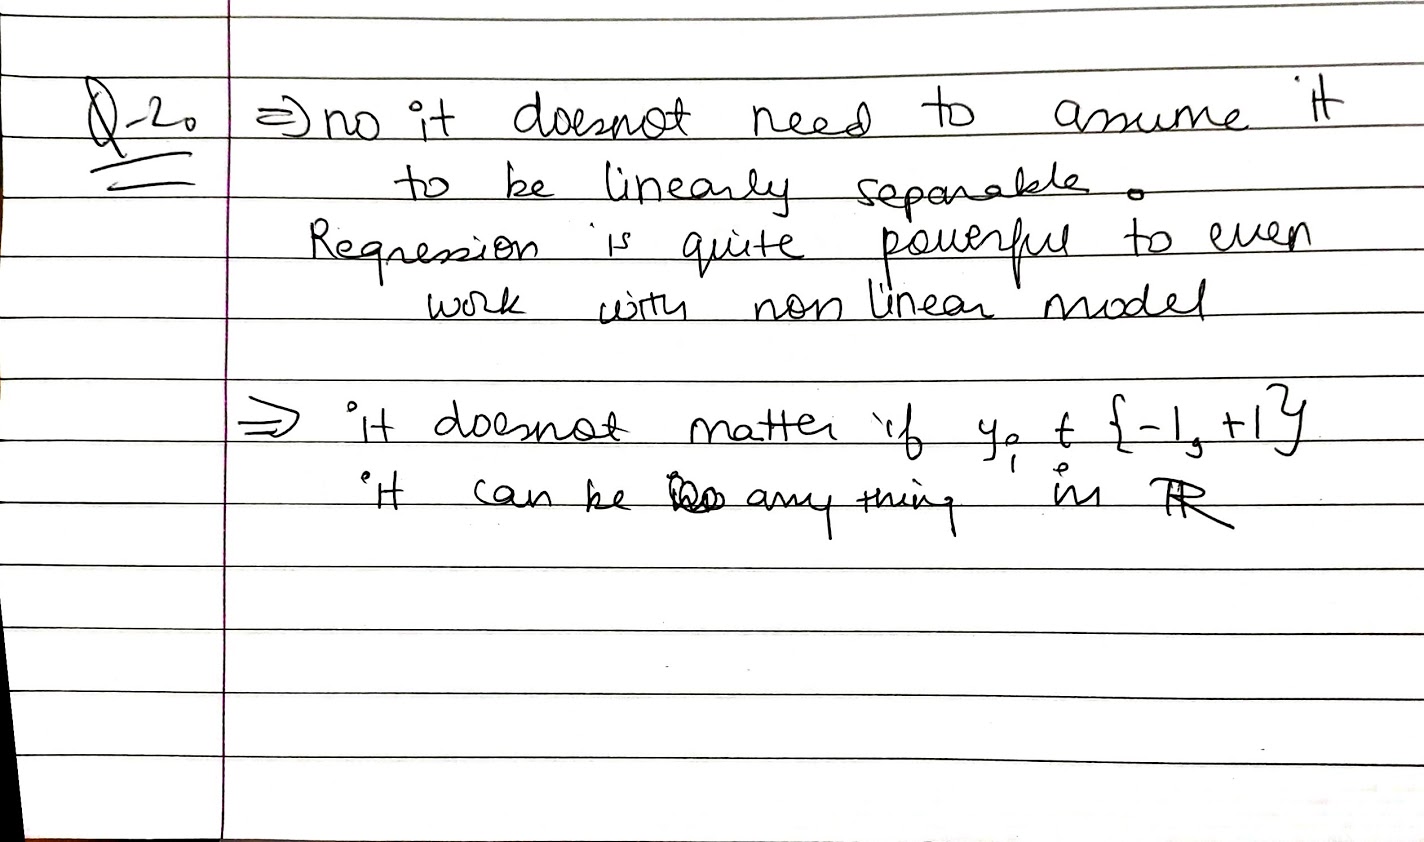 Q-2. ⇒ no it doesnot need to assume it
to be linearly separable.
Regression is quite powerful to even
work with non linear model
⇒ it doesnot matter if yᵢ ∈ {-1, +1}
it can be any thing in ℝ